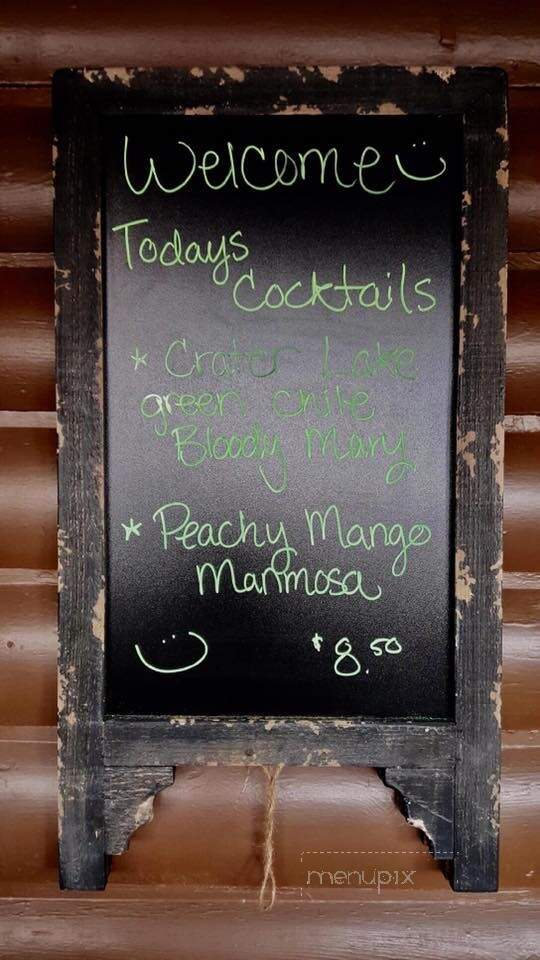 Welcome
Todays
Cocktails
* Crater Lake
green chile
Bloody Mary
* Peachy Mango
Manmosa
$8.50
menupix